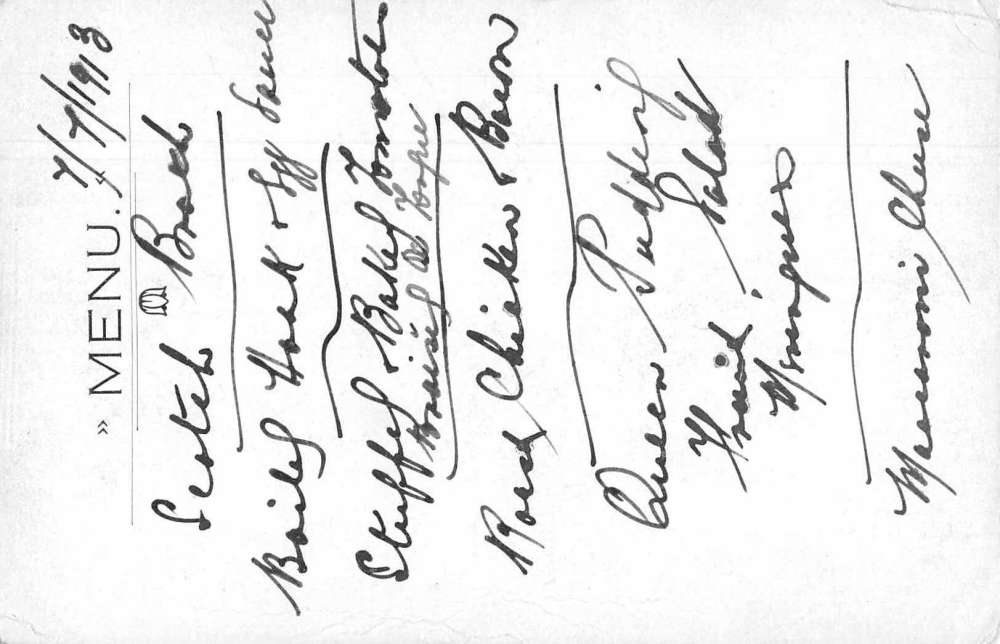 7/7/1913
» MENU. «
Scotch Broth
Boiled Hock & Egg Sauce
Stuffed & Baked Tomatoes
Roast Chicken & Bacon
Queen Pudding
Fruit Salad
Meringues
Maccaroni Cheese